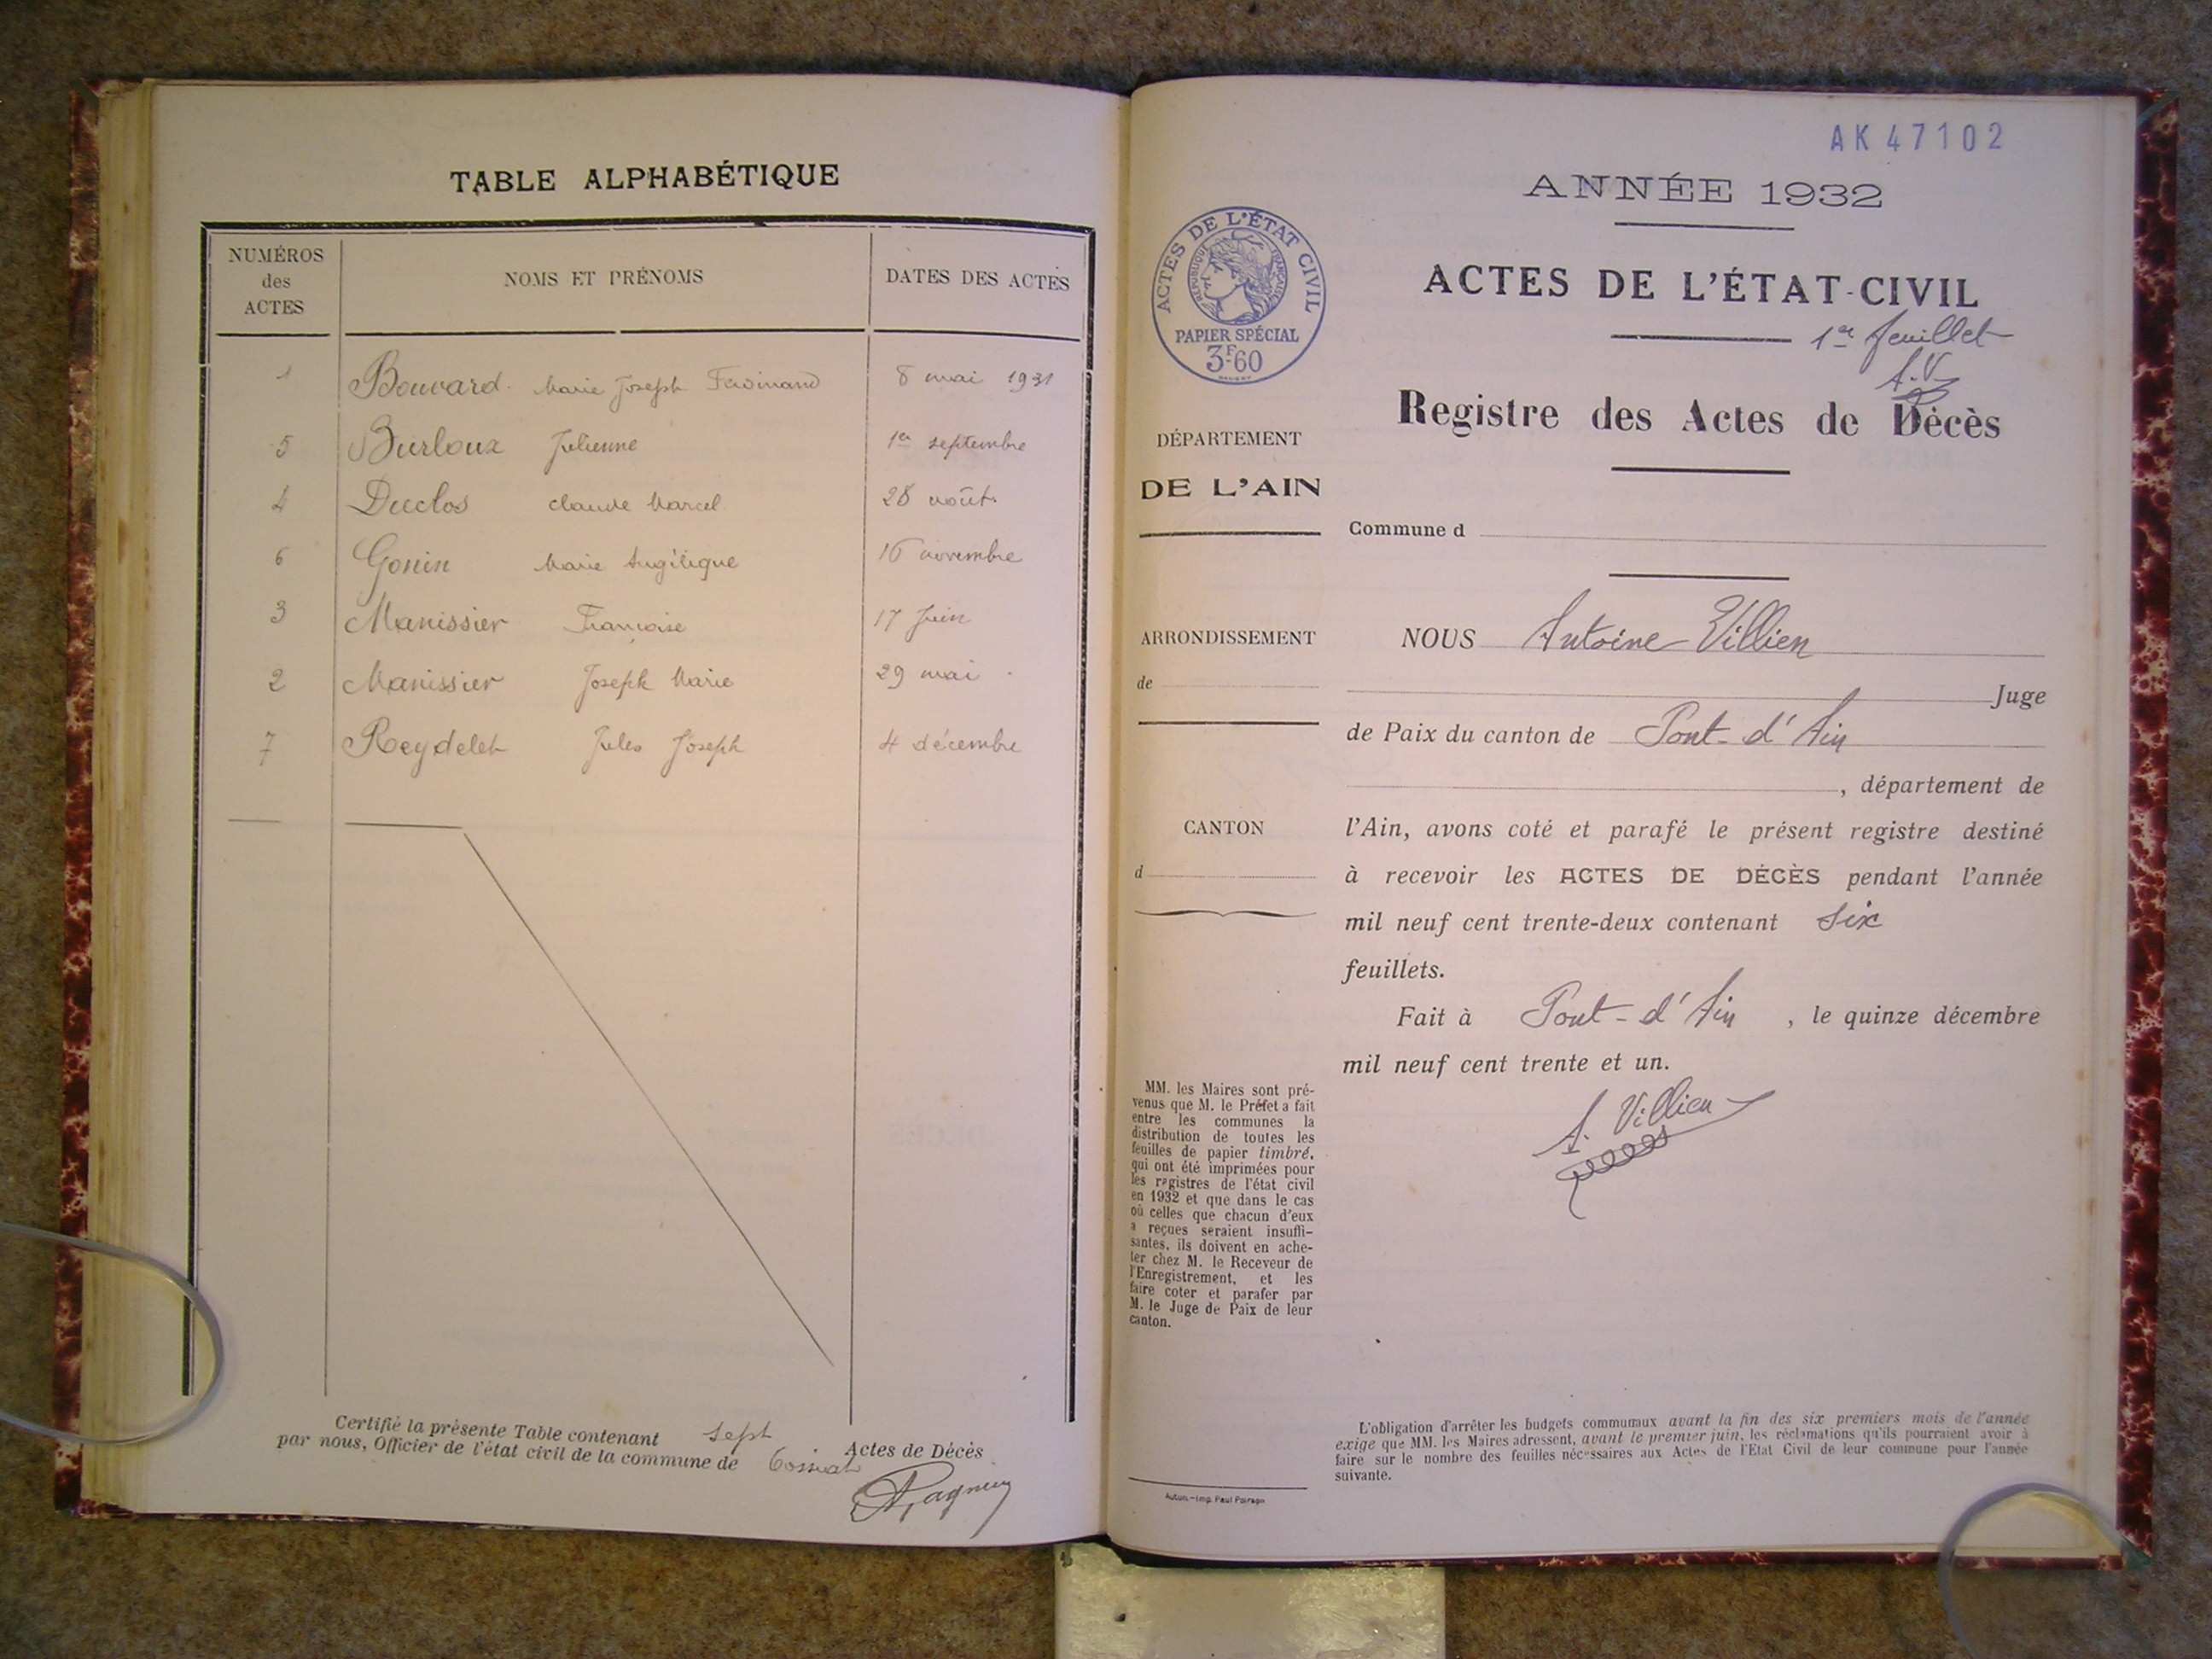 TABLE ALPHABÉTIQUE
NUMÉROS
des
ACTES
NOMS ET PRÉNOMS
DATES DES ACTES
1 Bouvard Marie Joseph Ferdinand 8 mai 1931
5 Burloux Julienne 1er septembre
4 Duclos Claude Marcel 28 août
6 Gonin Marie Angélique 16 novembre
3 Manissier Françoise 17 Juin
2 Manissier Joseph Marie 29 mai
7 Reydelet Jules Joseph 4 décembre
Certifié la présente Table contenant sept Actes de Décès
par nous, Officier de l'état civil de la commune de
AK 47102
ANNÉE 1932
ACTES DE L'ÉTAT CIVIL
RÉPUBLIQUE FRANÇAISE
PAPIER SPÉCIAL
3F60
ACTES DE L'ÉTAT-CIVIL
1er feuillet
A.V.
Registre des Actes de Décès
DÉPARTEMENT
DE L'AIN
Commune d
ARRONDISSEMENT
de
CANTON
d
NOUS Antoine Villien
Juge
de Paix du canton de Pont-d'Ain
, département de
l'Ain, avons coté et parafé le présent registre destiné
à recevoir les ACTES DE DÉCÈS pendant l'année
mil neuf cent trente-deux contenant six
feuillets.
Fait à Pont-d'Ain , le quinze décembre
mil neuf cent trente et un.
A. Villien
MM. les Maires sont pré-
venus que M. le Préfet a fait
entre les communes la
distribution de toutes les
feuilles de papier timbré,
qui ont été imprimées pour
les registres de l'état civil
en 1932 et que dans le cas
où celles que chacun d'eux
a reçues seraient insuffi-
santes, ils doivent en ache-
ter chez M. le Receveur de
l'Enregistrement, et les
faire coter et parafer par
M. le Juge de Paix de leur
canton.
Autom.-Imp. Paul Paragon
L'obligation d'arrêter les budgets communaux avant la fin des six premiers mois de l'année
exige que MM. les Maires adressent, avant le premier juin, les réclamations qu'ils pourraient avoir à
faire sur le nombre des feuilles nécessaires aux Actes de l'Etat Civil de leur commune pour l'année
suivante.